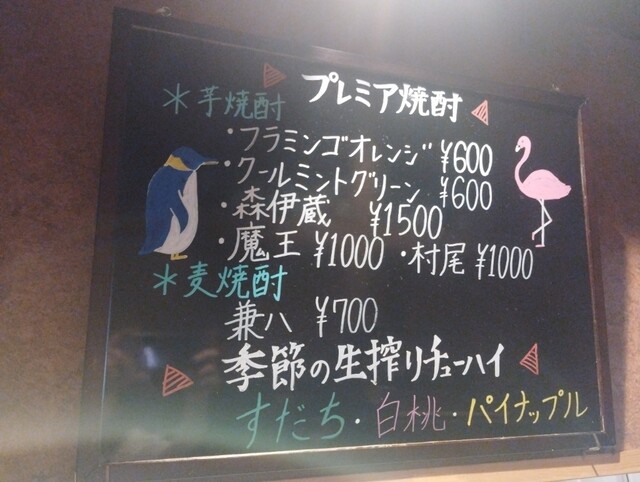 プレミア焼酎
＊芋焼酎
・フラミンゴオレンジ ¥600
・クールミントグリーン ¥600
・森伊蔵 ¥1500
・魔王 ¥1000 ・村尾 ¥1000
＊麦焼酎
兼八 ¥700
季節の生搾りチューハイ
すだち・白桃・パイナップル